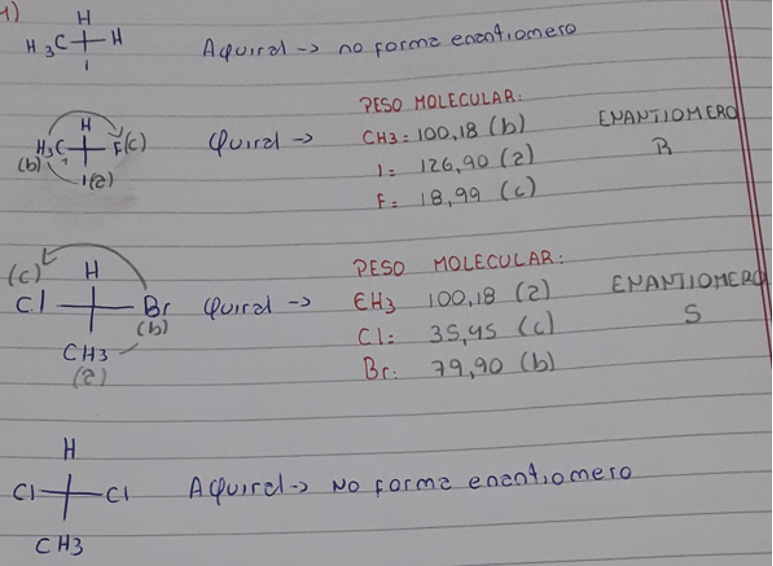 1)
H
H3C H
I
Aquiral → no forma enantiomero
H
H3C F(c)
(b)
I(a)
Quiral →
PESO MOLECULAR:
CH3: 100,18 (b)
I= 126,90 (a)
F= 18,99 (c)
ENANTIOMERO
R
(c) H
Cl Br
(b)
CH3
(a)
Quiral →
PESO MOLECULAR:
CH3 100,18 (a)
Cl: 35,45 (c)
Br: 79,90 (b)
ENANTIOMERO
S
H
Cl Cl
CH3
Aquiral → No forma enantiomero